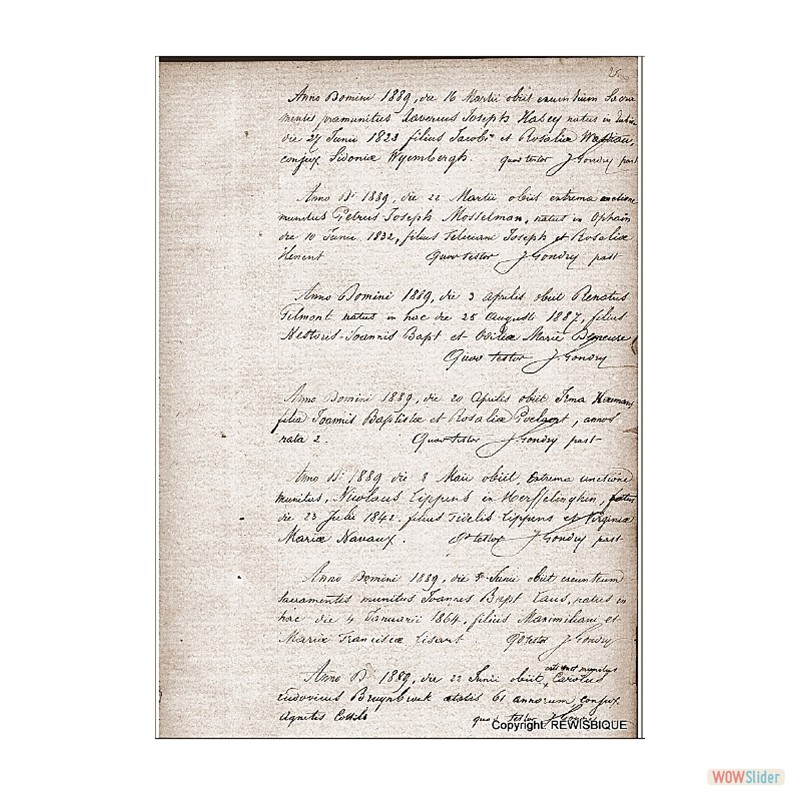 Anno Domini 1889, die 16 Martii obiit exeuntium Sacra
mentis praemunitus Xaverius Joseph Hasey natus in
die 27 Junii 1823 filius Jacobi et Rosaliæ
conjux Sidoniæ Wyembergh. quod testor J Gondry past
Anno D. 1889, die 22 Martii obiit extrema unctione
munitus Petrus Joseph Mosselman, natus in Ophain
die 10 Junii 1832, filius Feliciani Joseph et Rosaliæ
Henent Quod testor J Gondry past
Anno Domini 1889, die 3 Aprilis obiit Renatus
Gilmont natus in hac die 25 Augusti 1887, filius
Nestoris-Joannis Bapt et Odiliæ Mariæ
Quod testor J. Gondry
Anno Domini 1889, die 20 Aprilis obiit Irma
filia Joannis Baptistæ et Rosaliæ annos
nata 2. Quod testor J Gondry past
Anno D. 1889 die 8 Maii obiit, extrema unctione
munitus, Nicolaus Lippens in natus
die 23 Julii 1842. filius Fidelis Lippens et Virginiæ
Mariæ Navaux. Qd testor J Gondry past
Anno Domini 1889, die Junii obiit exeuntium
sacramentis munitus Joannes Bapt natus in
hac die 4 Januarii 1864, filius Maximiliani et
Mariæ Franciscæ Lisart Qd testor J. Gondry
Anno D. 1889, die 22 Junii obiit, munitus Carolus
Ludovicus Bruynbroek ætatis 61 annorum conjux
Agnetis quod testor J Gondry
Copyright: REWISBIQUE
WOWSlider